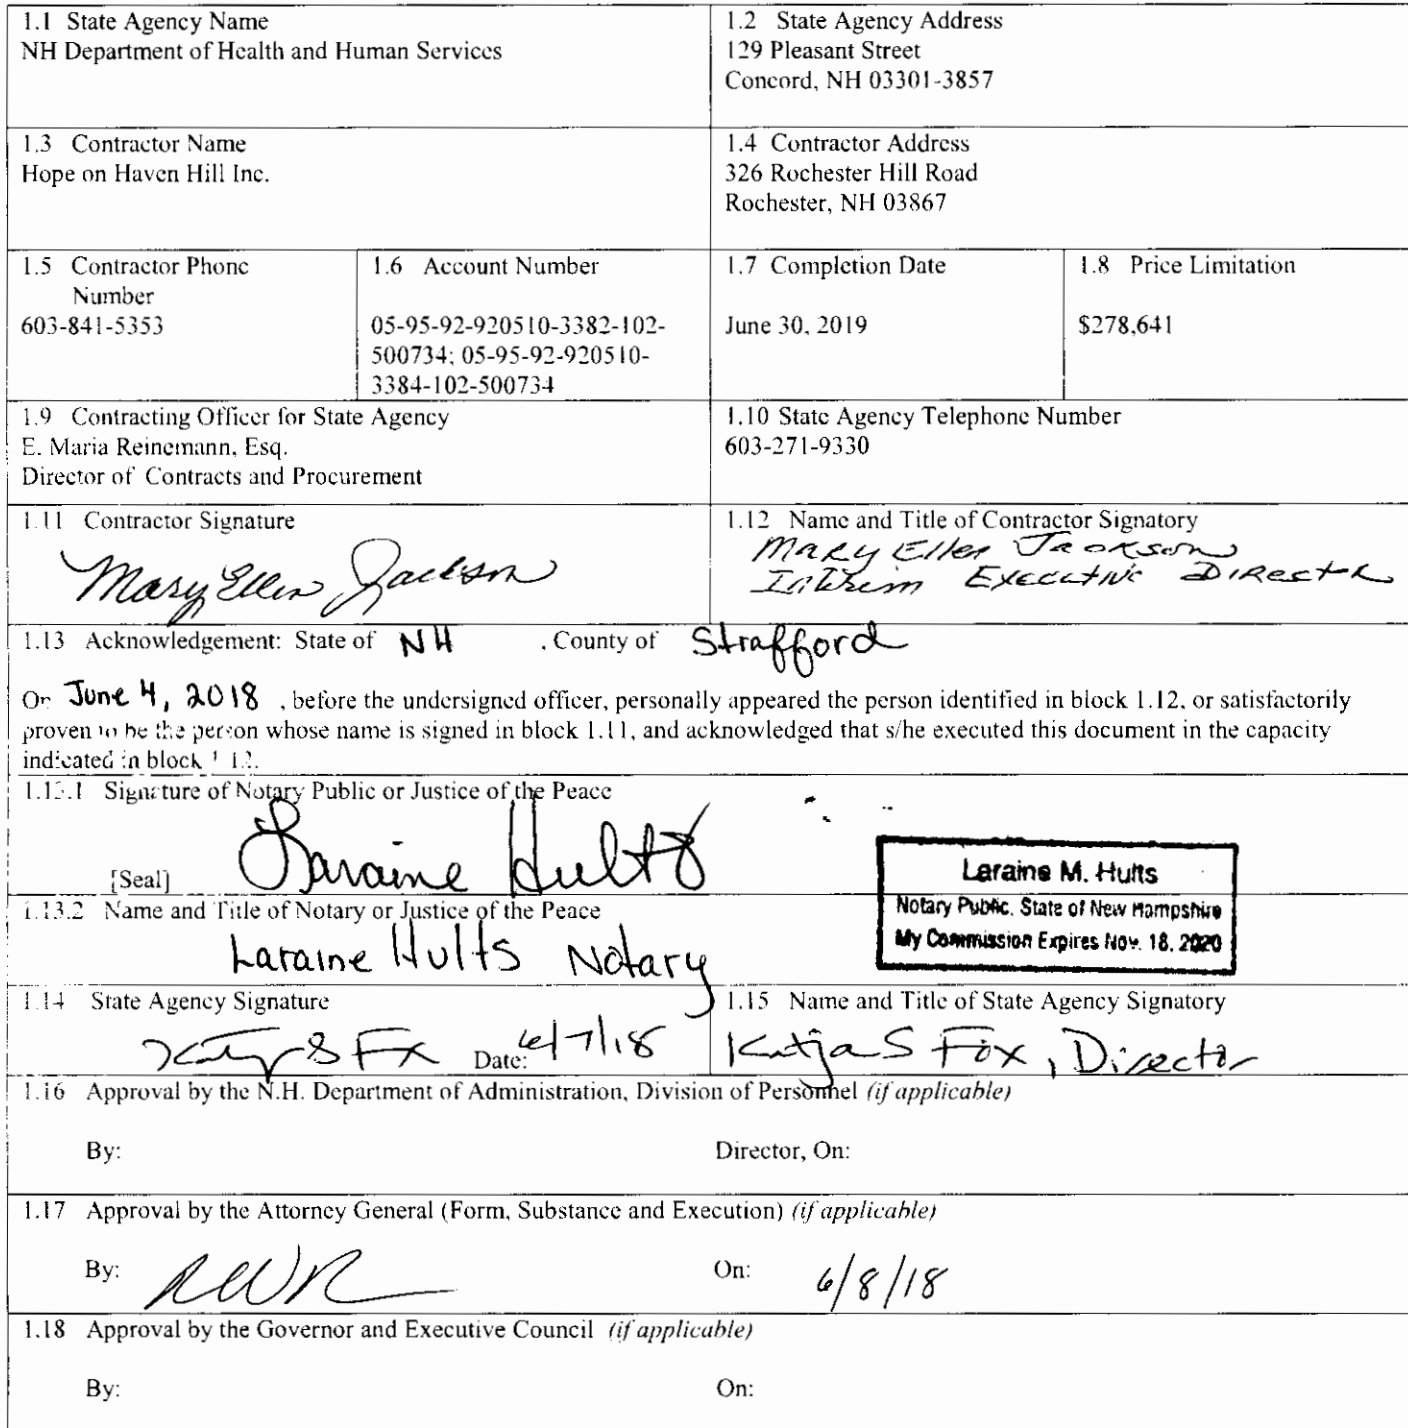 1.1 State Agency Name
NH Department of Health and Human Services
1.2 State Agency Address
129 Pleasant Street
Concord, NH 03301-3857
1.3 Contractor Name
Hope on Haven Hill Inc.
1.4 Contractor Address
326 Rochester Hill Road
Rochester, NH 03867
1.5 Contractor Phone
Number
603-841-5353
1.6 Account Number
05-95-92-920510-3382-102-
500734; 05-95-92-920510-
3384-102-500734
1.7 Completion Date
June 30, 2019
1.8 Price Limitation
$278,641
1.9 Contracting Officer for State Agency
E. Maria Reinemann, Esq.
Director of Contracts and Procurement
1.10 State Agency Telephone Number
603-271-9330
1.11 Contractor Signature
Mary Ellen Jackson
1.12 Name and Title of Contractor Signatory
Mary Ellen Jackson
Interim Executive Director
1.13 Acknowledgement: State of NH , County of Strafford
On June 4, 2018 , before the undersigned officer, personally appeared the person identified in block 1.12, or satisfactorily
proven to be the person whose name is signed in block 1.11, and acknowledged that s/he executed this document in the capacity
indicated in block 1.12.
1.13.1 Signature of Notary Public or Justice of the Peace
Laraine Hults
[Seal]
Laraine M. Hults
Notary Public, State of New Hampshire
My Commission Expires Nov. 18, 2020
1.13.2 Name and Title of Notary or Justice of the Peace
Laraine Hults Notary
1.14 State Agency Signature
Date: 6/7/18
1.15 Name and Title of State Agency Signatory
Katja S Fox, Director
1.16 Approval by the N.H. Department of Administration, Division of Personnel (if applicable)
By:
Director, On:
1.17 Approval by the Attorney General (Form, Substance and Execution) (if applicable)
By:
On: 6/8/18
1.18 Approval by the Governor and Executive Council (if applicable)
By:
On: